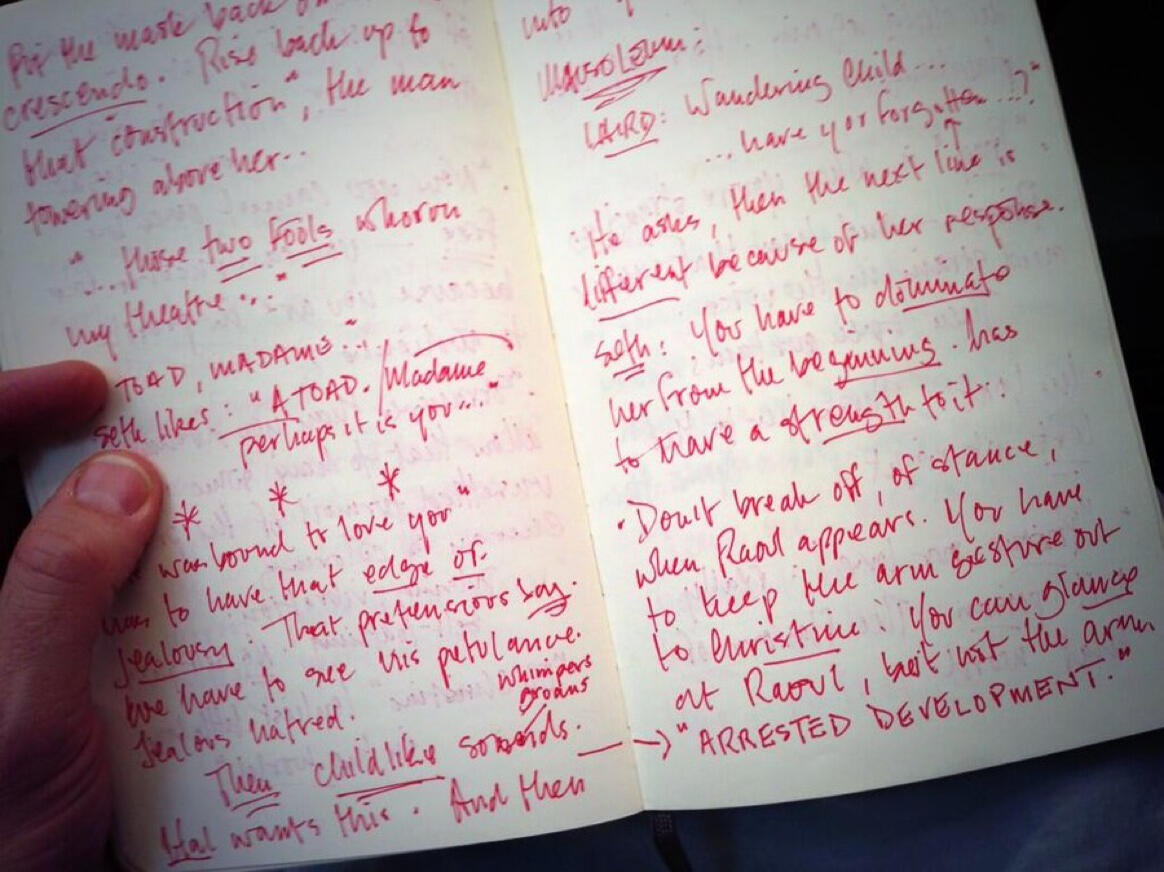 Put the mask back on
crescendo. Rise back up to
that "construction", the man
towering above her..
"...those two fools who run
my theatre..."
TOAD, MADAME..."
Seth likes: "A TOAD. / Madame
perhaps it is you..."
* * *
" was bound to love you "
has to have that edge of
jealousy. That pretensious boy.
We have to see his petulance.
Jealous hatred.
whimpers
groans
Then childlike sounds.
Hal wants this. And then
into
MAUSOLEUM:
LAIRD: Wandering Child...
...have you forgotten...?"
He asks, then the next line is
different because of her response.
Seth: You have to dominate
her from the beginning. has
to have a strength to it.
· Don't break off, of stance,
when Raoul appears. You have
to keep the arm gesture out
to Christine. You can glance
at Raoul, but not the arm
→ "ARRESTED DEVELOPMENT."